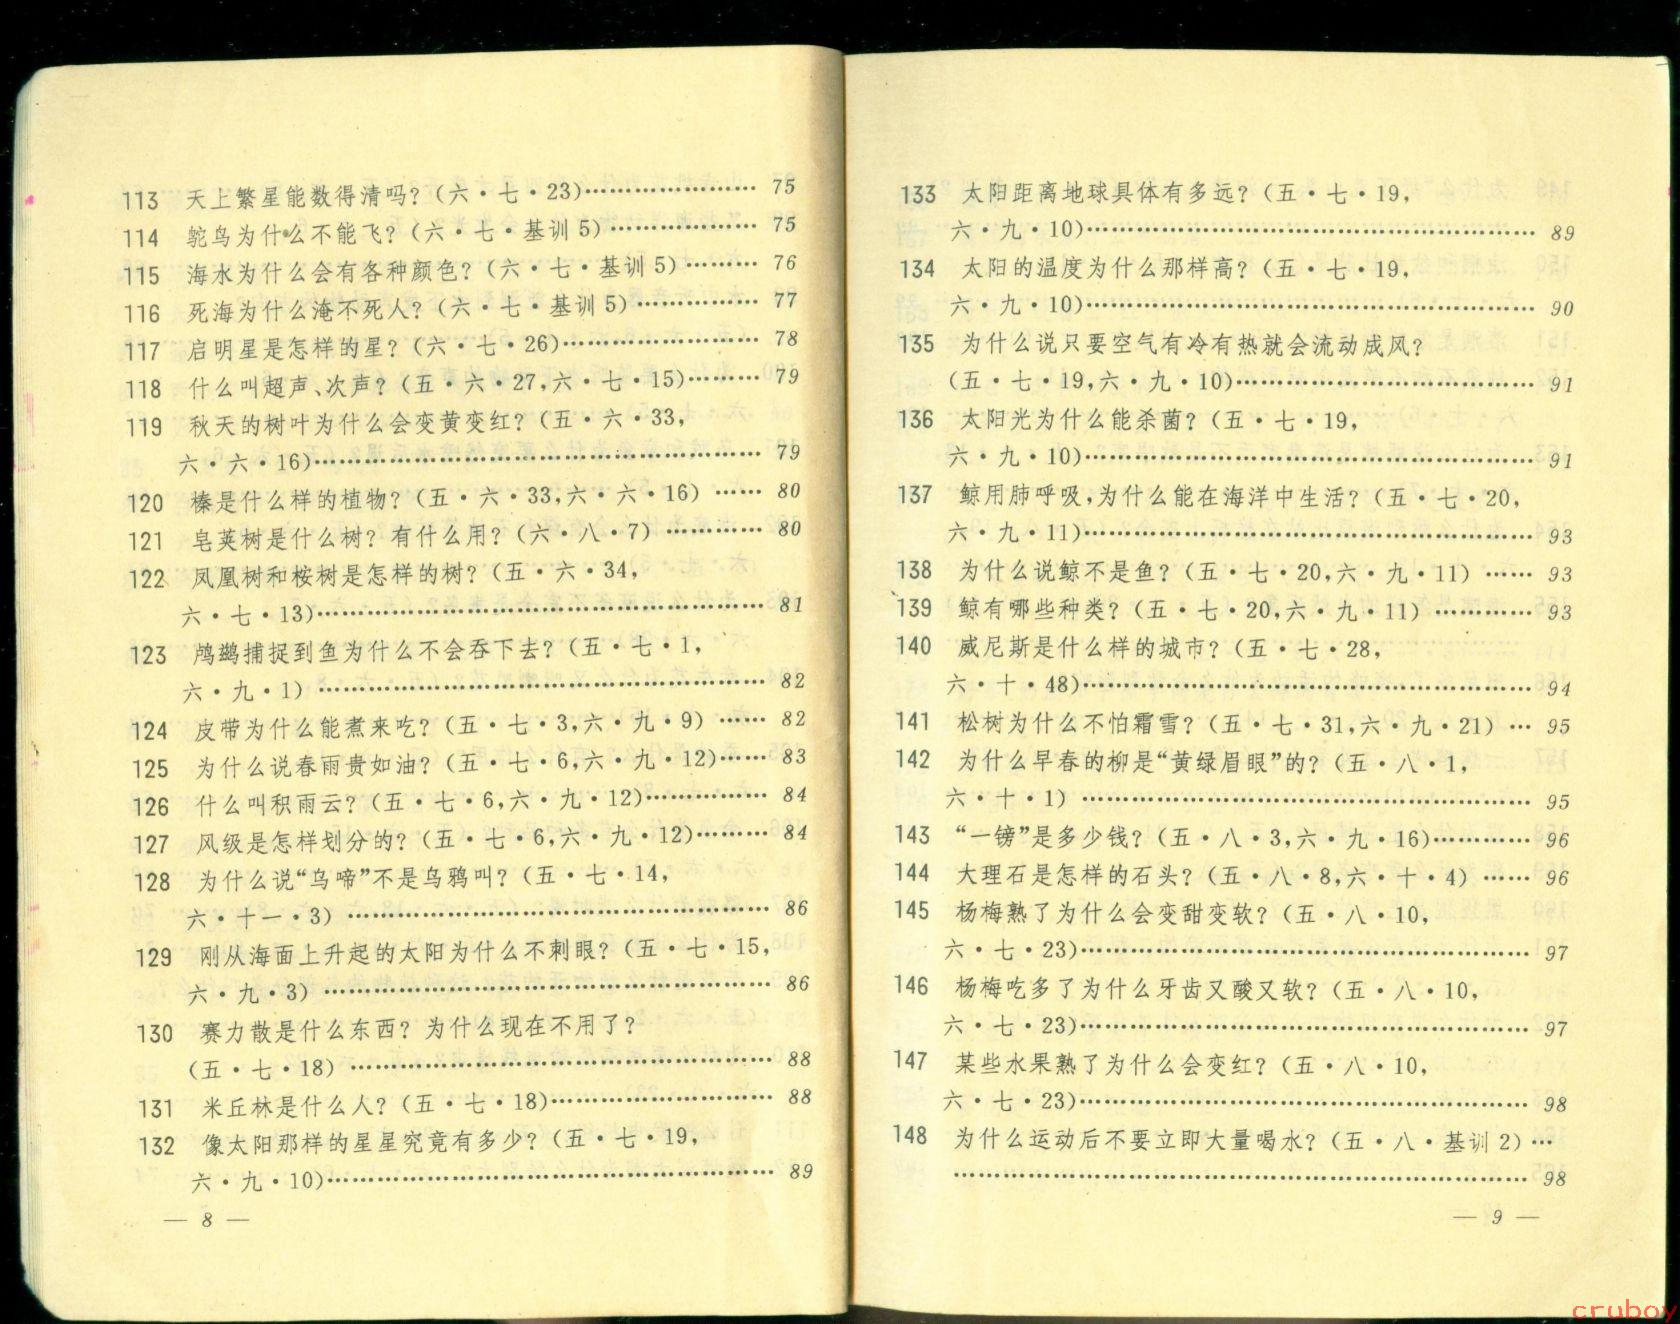 113 天上繁星能数得清吗?(六·七·23)………………… 75
114 鸵鸟为什么不能飞?(六·七·基训5)……………… 75
115 海水为什么会有各种颜色?(六·七·基训5)……… 76
116 死海为什么淹不死人?(六·七·基训5)…………… 77
117 启明星是怎样的星?(六·七·26)………………… 78
118 什么叫超声、次声?(五·六·27,六·七·15)……… 79
119 秋天的树叶为什么会变黄变红?(五·六·33,
六·六·16)……………………………………………… 79
120 榛是什么样的植物?(五·六·33,六·六·16)…… 80
121 皂荚树是什么树?有什么用?(六·八·7)………… 80
122 凤凰树和桉树是怎样的树?(五·六·34,
六·七·13)……………………………………………… 81
123 鸬鹚捕捉到鱼为什么不会吞下去?(五·七·1,
六·九·1)……………………………………………… 82
124 皮带为什么能煮来吃?(五·七·3,六·九·9)…… 82
125 为什么说春雨贵如油?(五·七·6,六·九·12)…… 83
126 什么叫积雨云?(五·七·6,六·九·12)…………… 84
127 风级是怎样划分的?(五·七·6,六·九·12)……… 84
128 为什么说“乌啼”不是乌鸦叫?(五·七·14,
六·十一·3)…………………………………………… 86
129 刚从海面上升起的太阳为什么不刺眼?(五·七·15,
六·九·3)……………………………………………… 86
130 赛力散是什么东西?为什么现在不用了?
(五·七·18)…………………………………………… 88
131 米丘林是什么人?(五·七·18)…………………… 88
132 像太阳那样的星星究竟有多少?(五·七·19,
六·九·10)……………………………………………… 89
— 8 —
133 太阳距离地球具体有多远?(五·七·19,
六·九·10)……………………………………………… 89
134 太阳的温度为什么那样高?(五·七·19,
六·九·10)……………………………………………… 90
135 为什么说只要空气有冷有热就会流动成风?
(五·七·19,六·九·10)……………………………… 91
136 太阳光为什么能杀菌?(五·七·19,
六·九·10)……………………………………………… 91
137 鲸用肺呼吸,为什么能在海洋中生活?(五·七·20,
六·九·11)……………………………………………… 93
138 为什么说鲸不是鱼?(五·七·20,六·九·11)…… 93
139 鲸有哪些种类?(五·七·20,六·九·11)………… 93
140 威尼斯是什么样的城市?(五·七·28,
六·十·48)……………………………………………… 94
141 松树为什么不怕霜雪?(五·七·31,六·九·21)… 95
142 为什么早春的柳是“黄绿眉眼”的?(五·八·1,
六·十·1)……………………………………………… 95
143 “一镑”是多少钱?(五·八·3,六·九·16)………… 96
144 大理石是怎样的石头?(五·八·8,六·十·4)…… 96
145 杨梅熟了为什么会变甜变软?(五·八·10,
六·七·23)……………………………………………… 97
146 杨梅吃多了为什么牙齿又酸又软?(五·八·10,
六·七·23)……………………………………………… 97
147 某些水果熟了为什么会变红?(五·八·10,
六·七·23)……………………………………………… 98
148 为什么运动后不要立即大量喝水?(五·八·基训2)…
……………………………………………………………… 98
— 9 —
cruboy